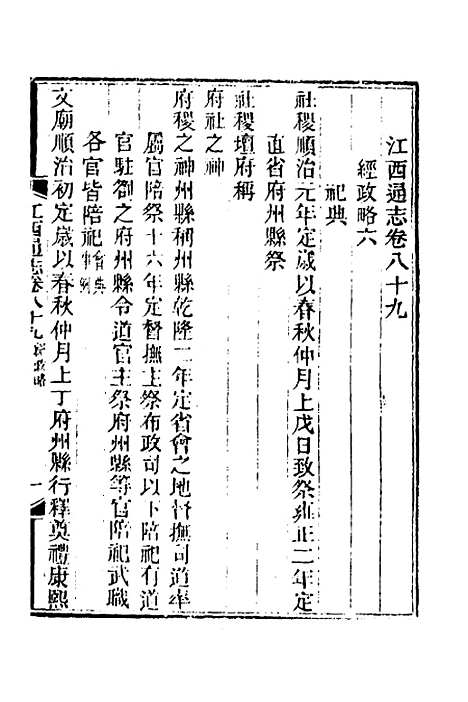 江西通志卷八十九
經政略六
祀典
社稷順治元年定歲以春秋仲月上戊日致祭雍正二年定
直省府州縣祭
社稷壇府稱
府稷之神州縣稱州縣乾隆二年定省會之地督撫司道率
府社之神
屬官陪祭十六年定督撫主祭布政司以下陪祀有道
官駐劄之府州縣令道官主祭府州縣等官陪祀武職
各官皆陪祀會典
則例
文廟順治初定歲以春秋仲月上丁府州縣行釋奠禮康熙
江西通志卷八十九 經政略 一